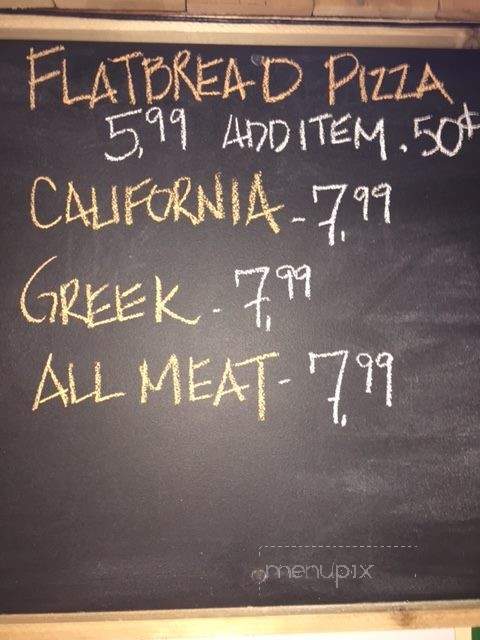 FLATBREAD PIZZA
5.99 ADD ITEM .50¢
CALIFORNIA - 7.99
GREEK - 7.99
ALL MEAT - 7.99
menupix